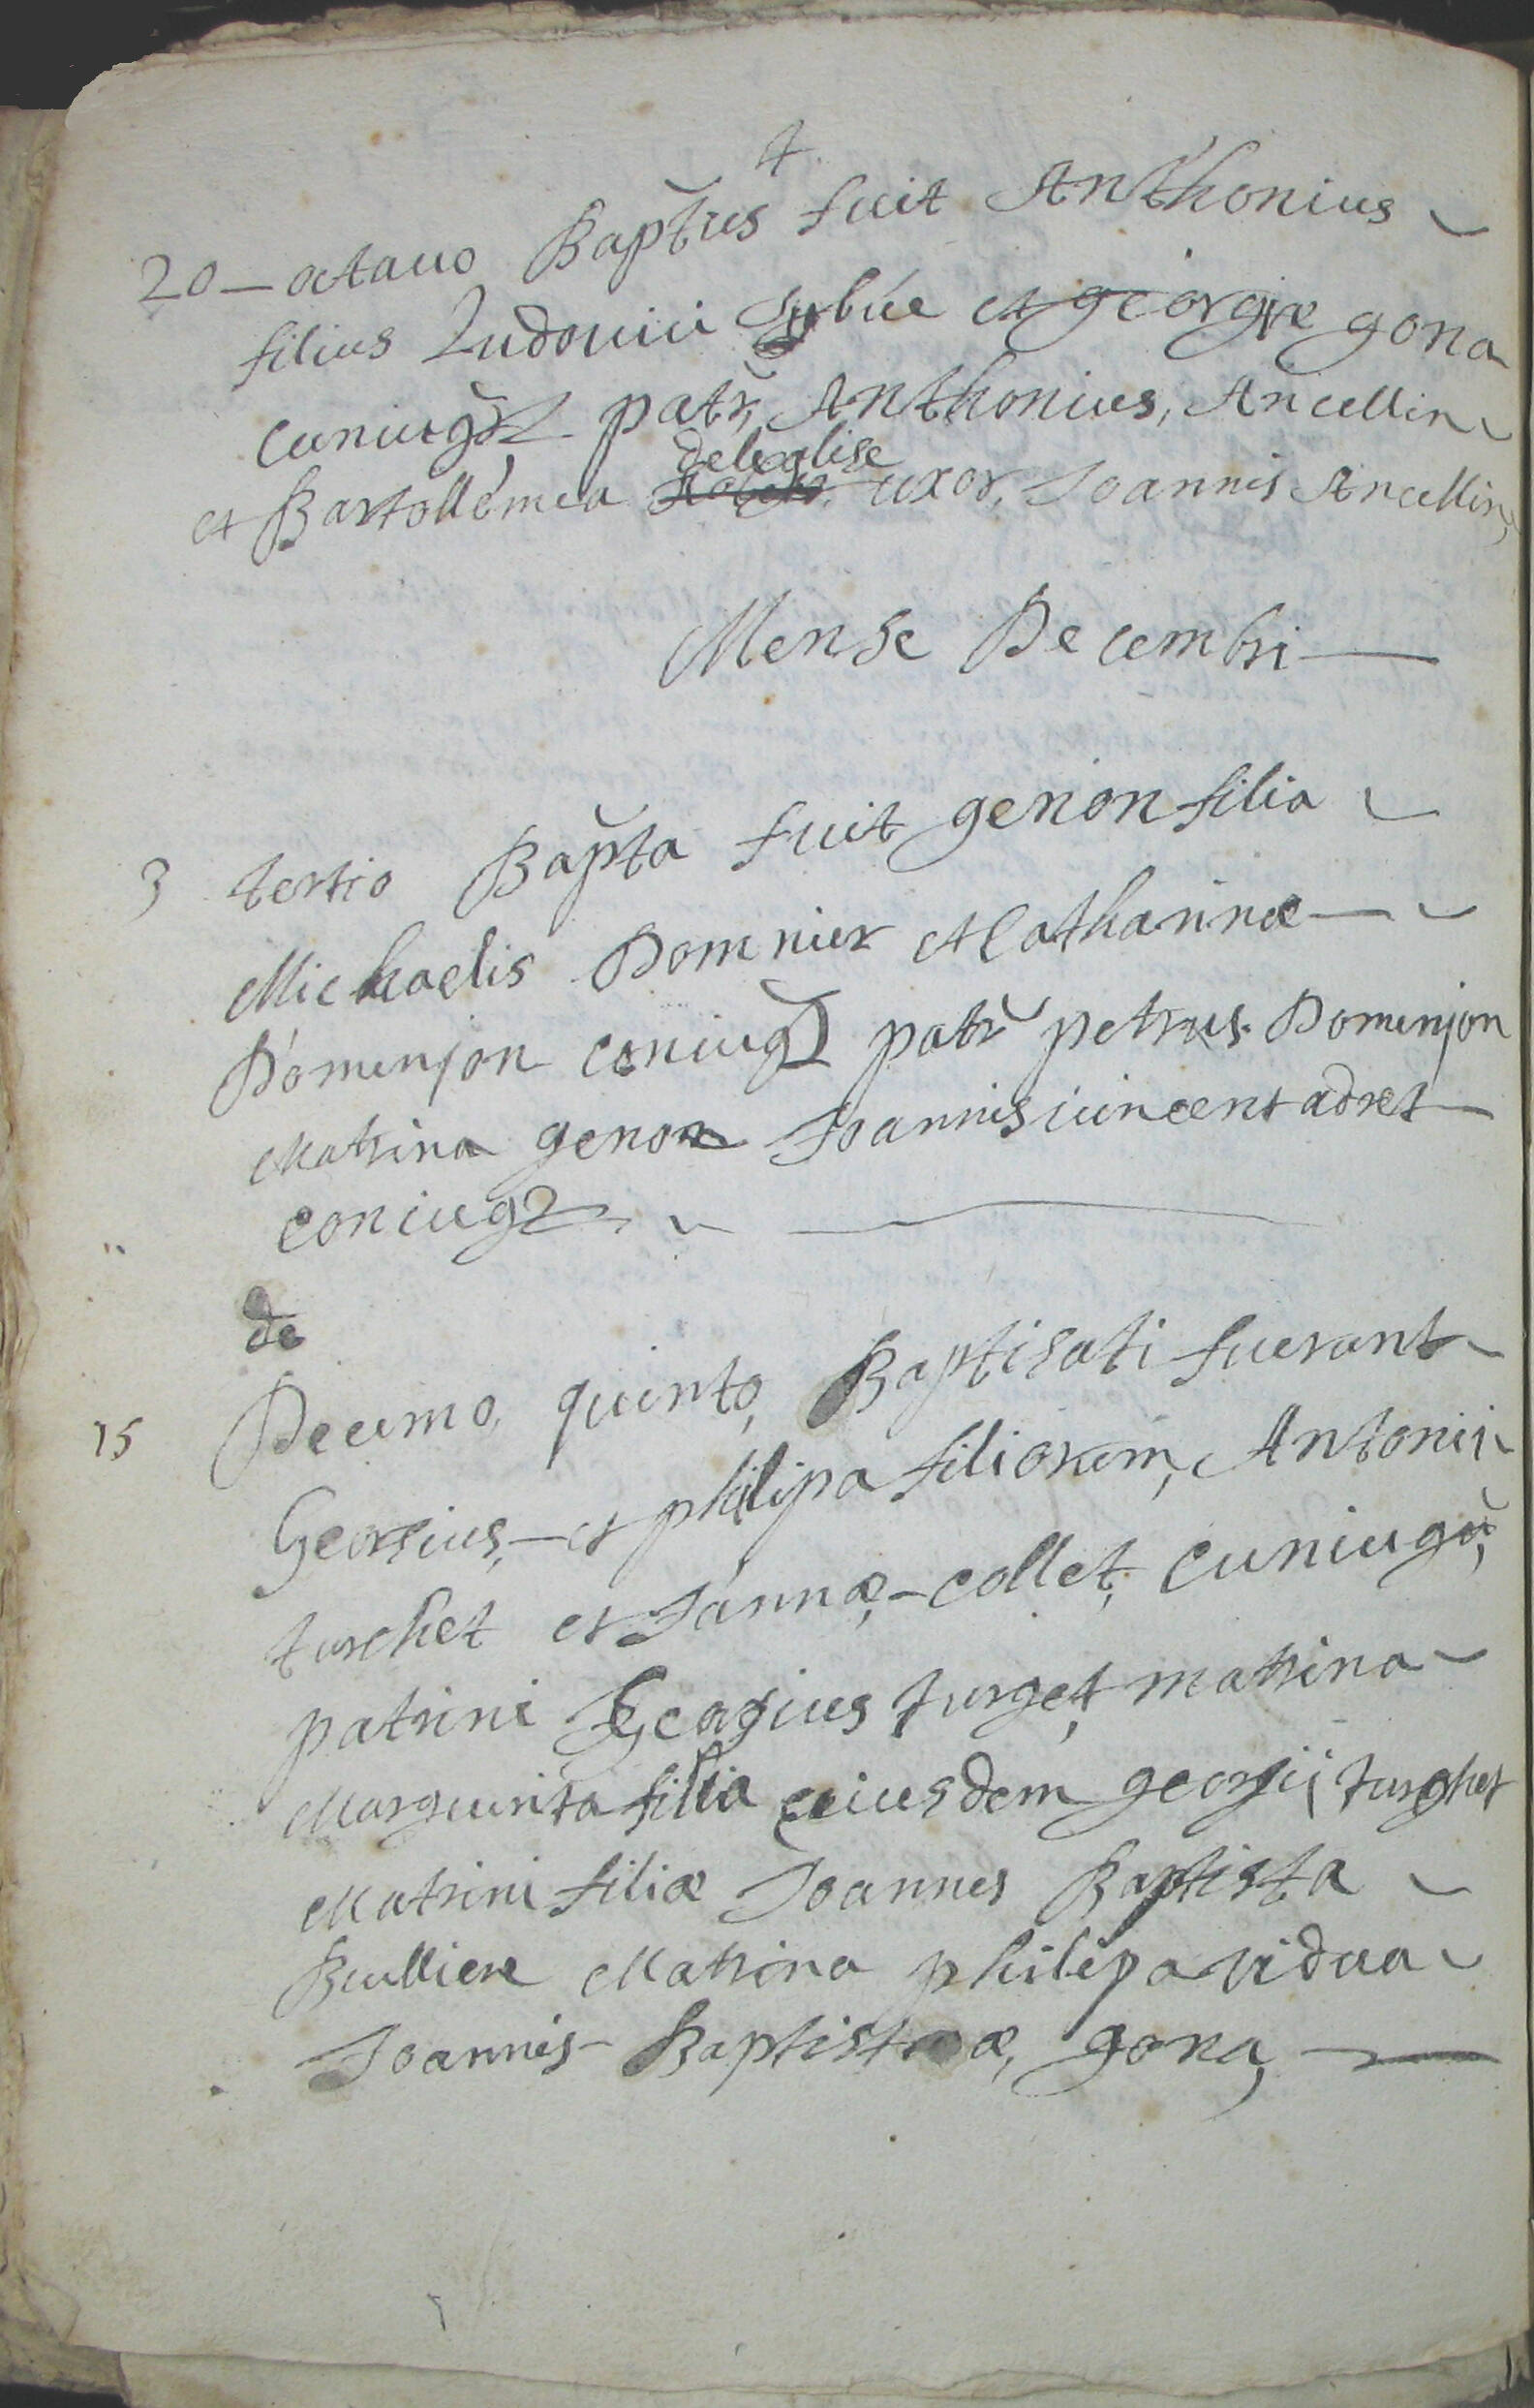 4
20 — octavo Bap̃tus fuit Anthonius
filius Ludovici et georgiæ gona
Cuniug̃ patr̃ Anthonius, Ancellin
deleglise
et Bartollémea uxor, Joannis Ancellin,
Mense Decembri —
3 tertio Bap̃ta fuit genon filia
Michaelis Domnier et Catharinæ —
Domenjon coniug patr̃ petrus Domenjon
Matrina genon Joannis vincent adret
coniug
de
15 Decimo quinto, Baptisati fuerant
Georgius, — et philipa filiorum, Antonii
turchet et Jannæ, — collet, cuniugũ,
patrini Georgius turget, matrina
Marguirita fillia eiusdem georgii turghet
Matrini filiæ Joannes Baptista
Bulliere Matrina philipa vidua
Joannis Baptistæ, gona, —